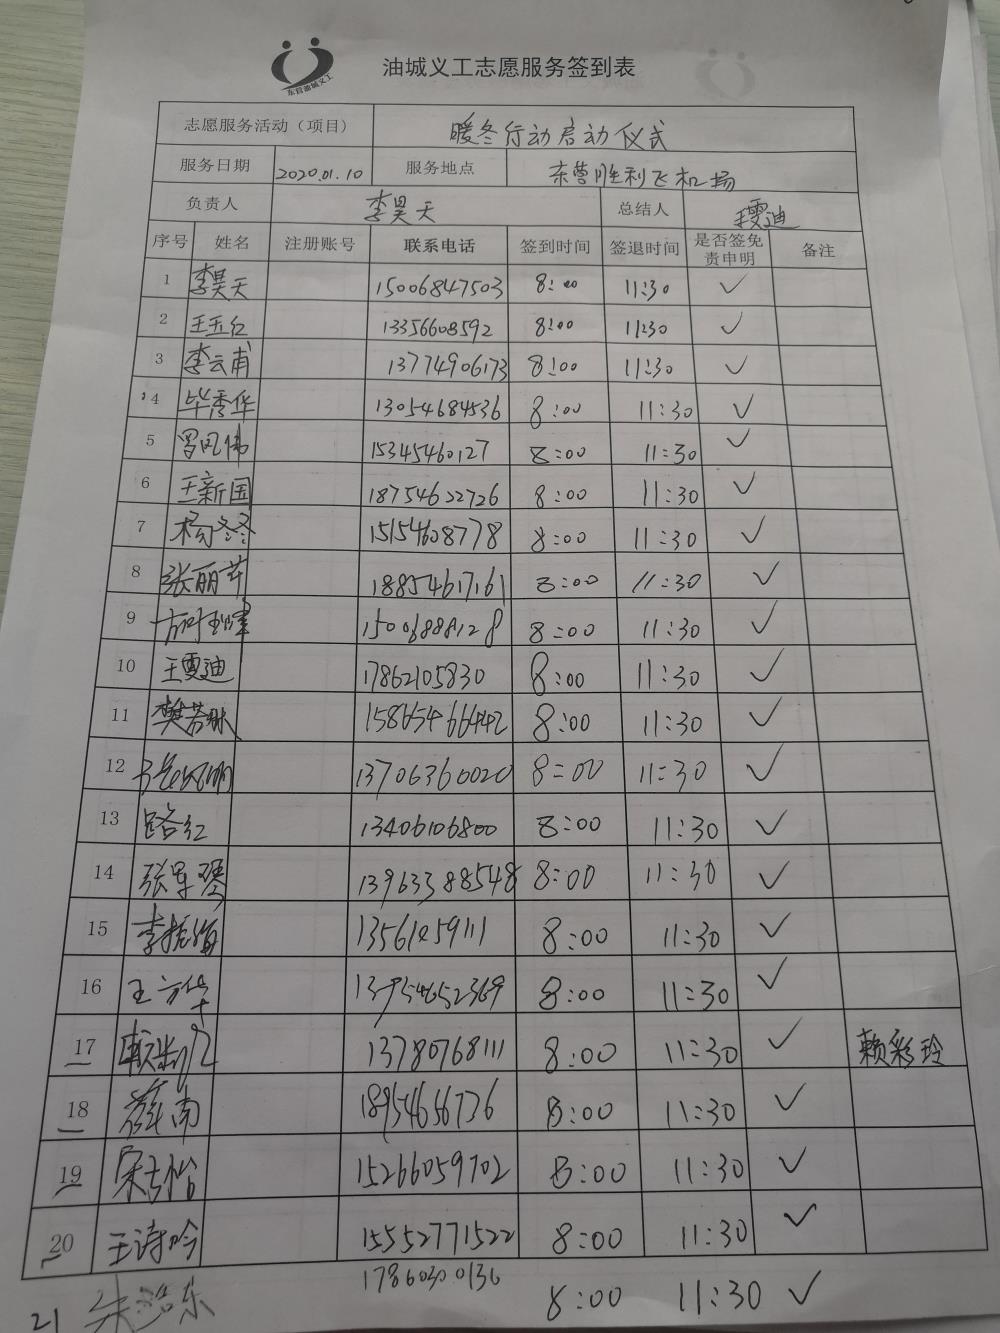 东营油城义工
油城义工志愿服务签到表
志愿服务活动（项目） 暖冬行动启动仪式
服务日期 2020.01.10 服务地点 东营胜利飞机场
负责人 李昊天 总结人 王雪迪
序号 姓名 注册账号 联系电话 签到时间 签退时间 是否签免责申明 备注
1 李昊天 15006847503 8:00 11:30 ✓
2 王玉红 13356608592 8:00 11:30 ✓
3 李云甫 13774906173 8:00 11:30 ✓
4 毕秀华 13054684536 8:00 11:30 ✓
5 罗凤伟 15345460127 8:00 11:30 ✓
6 王新国 18754622726 8:00 11:30 ✓
7 杨冬冬 15154608778 8:00 11:30 ✓
8 张丽芹 18854617161 8:00 11:30 ✓
9 15006888128 8:00 11:30 ✓
10 王雪迪 17862105830 8:00 11:30 ✓
11 樊芳琳 15865466442 8:00 11:30 ✓
12 13706360020 8:00 11:30 ✓
13 路红 13406106800 8:00 11:30 ✓
14 张军琴 13963388548 8:00 11:30 ✓
15 李振海 8:00 11:30 ✓
16 王方华 13954652369 8:00 11:30 ✓
17 13780768111 8:00 11:30 ✓ 赖彩玲
18 薛南 18954656736 8:00 11:30 ✓
19 15266059702 8:00 11:30 ✓
20 王诗吟 15552771522 8:00 11:30 ✓
21 朱浩东 17860300136 8:00 11:30 ✓